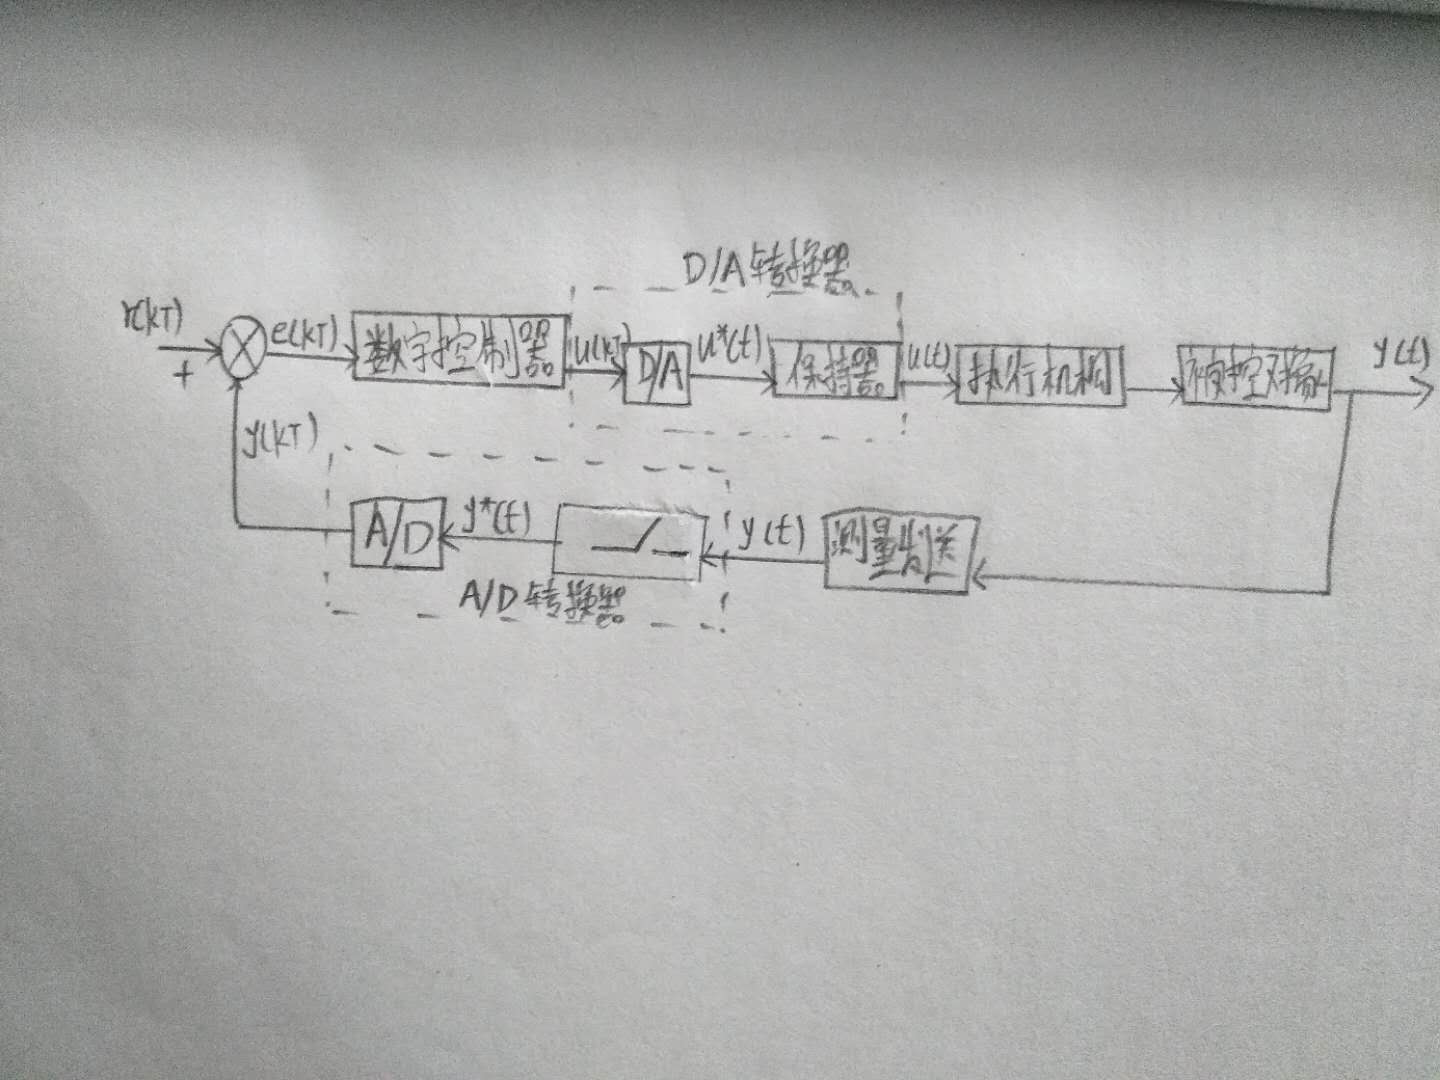 D/A转换器
r(kT)
+
e(kT)
数字控制器
u(kT)
D/A
u*(t)
保持器
u(t)
执行机构
被控对象
y(t)
y(kT)
A/D
y*(t)
y(t)
测量
送
A/D转换器